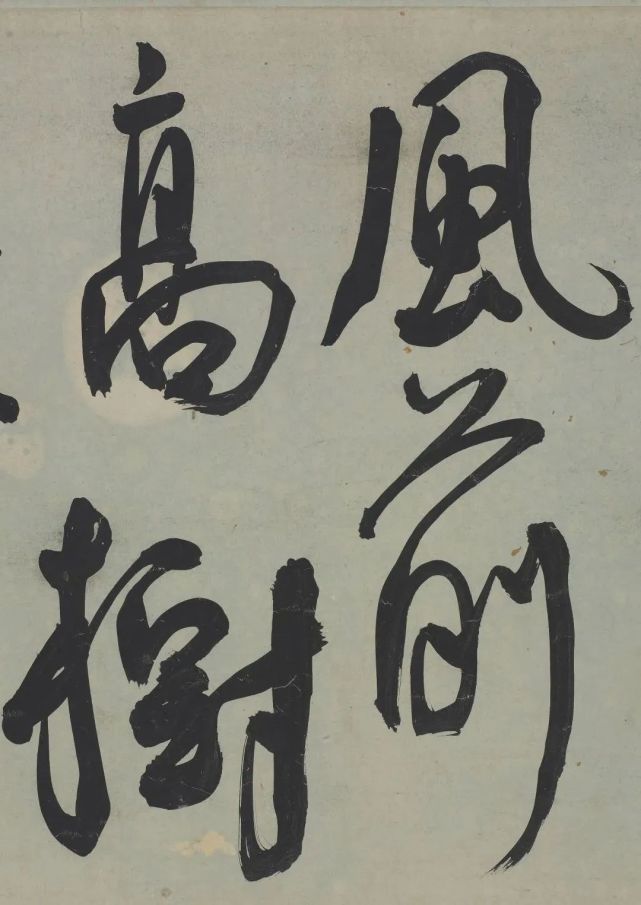 風前
高樹